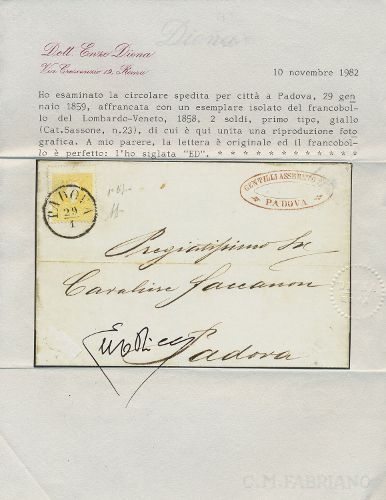 Diena
Dott. Enzo Diena
Via Crescenzio 19, Roma
10 novembre 1982
Ho esaminato la circolare spedita per città a Padova, 29 gen
naio 1859, affrancata con un esemplare isolato del francobol-
lo del Lombardo-Veneto, 1858, 2 soldi, primo tipo, giallo
(Cat.Sassone, n.23), di cui è qui unita una riproduzione foto
grafica. A mio parere, la lettera è originale ed il francobol-
lo è perfetto: l'ho siglata "ED". * * * * * * * * * * * *
GENTILLI
PADOVA
PADOVA
29
1
Pregiatissimo Sr
Cavaliere Jaccanon
Padova
C.M.FABRIANO